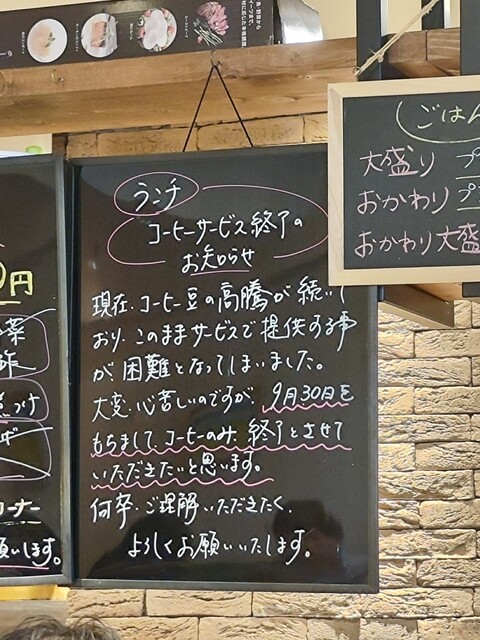 ランチ
コーヒーサービス終了の
お知らせ
現在、コーヒー豆の高騰が続いて
おり、このままサービスで提供する事
が、困難となってしまいました。
大変、心苦しいのですが、9月30日を
もちまして、コーヒーのみ、終了とさせて
いただきたいと思います。
何卒、ご理解いただきたく、
よろしくお願いいたします。
ごはん
大盛り プ
おかわり プ
おかわり大盛
円
菜
酢
つけ
ーナー
願いします。